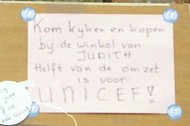 Kom kyken en kopen
by de winkel van
JUDITH
Helft van de omzet
is voor
UNICEF!